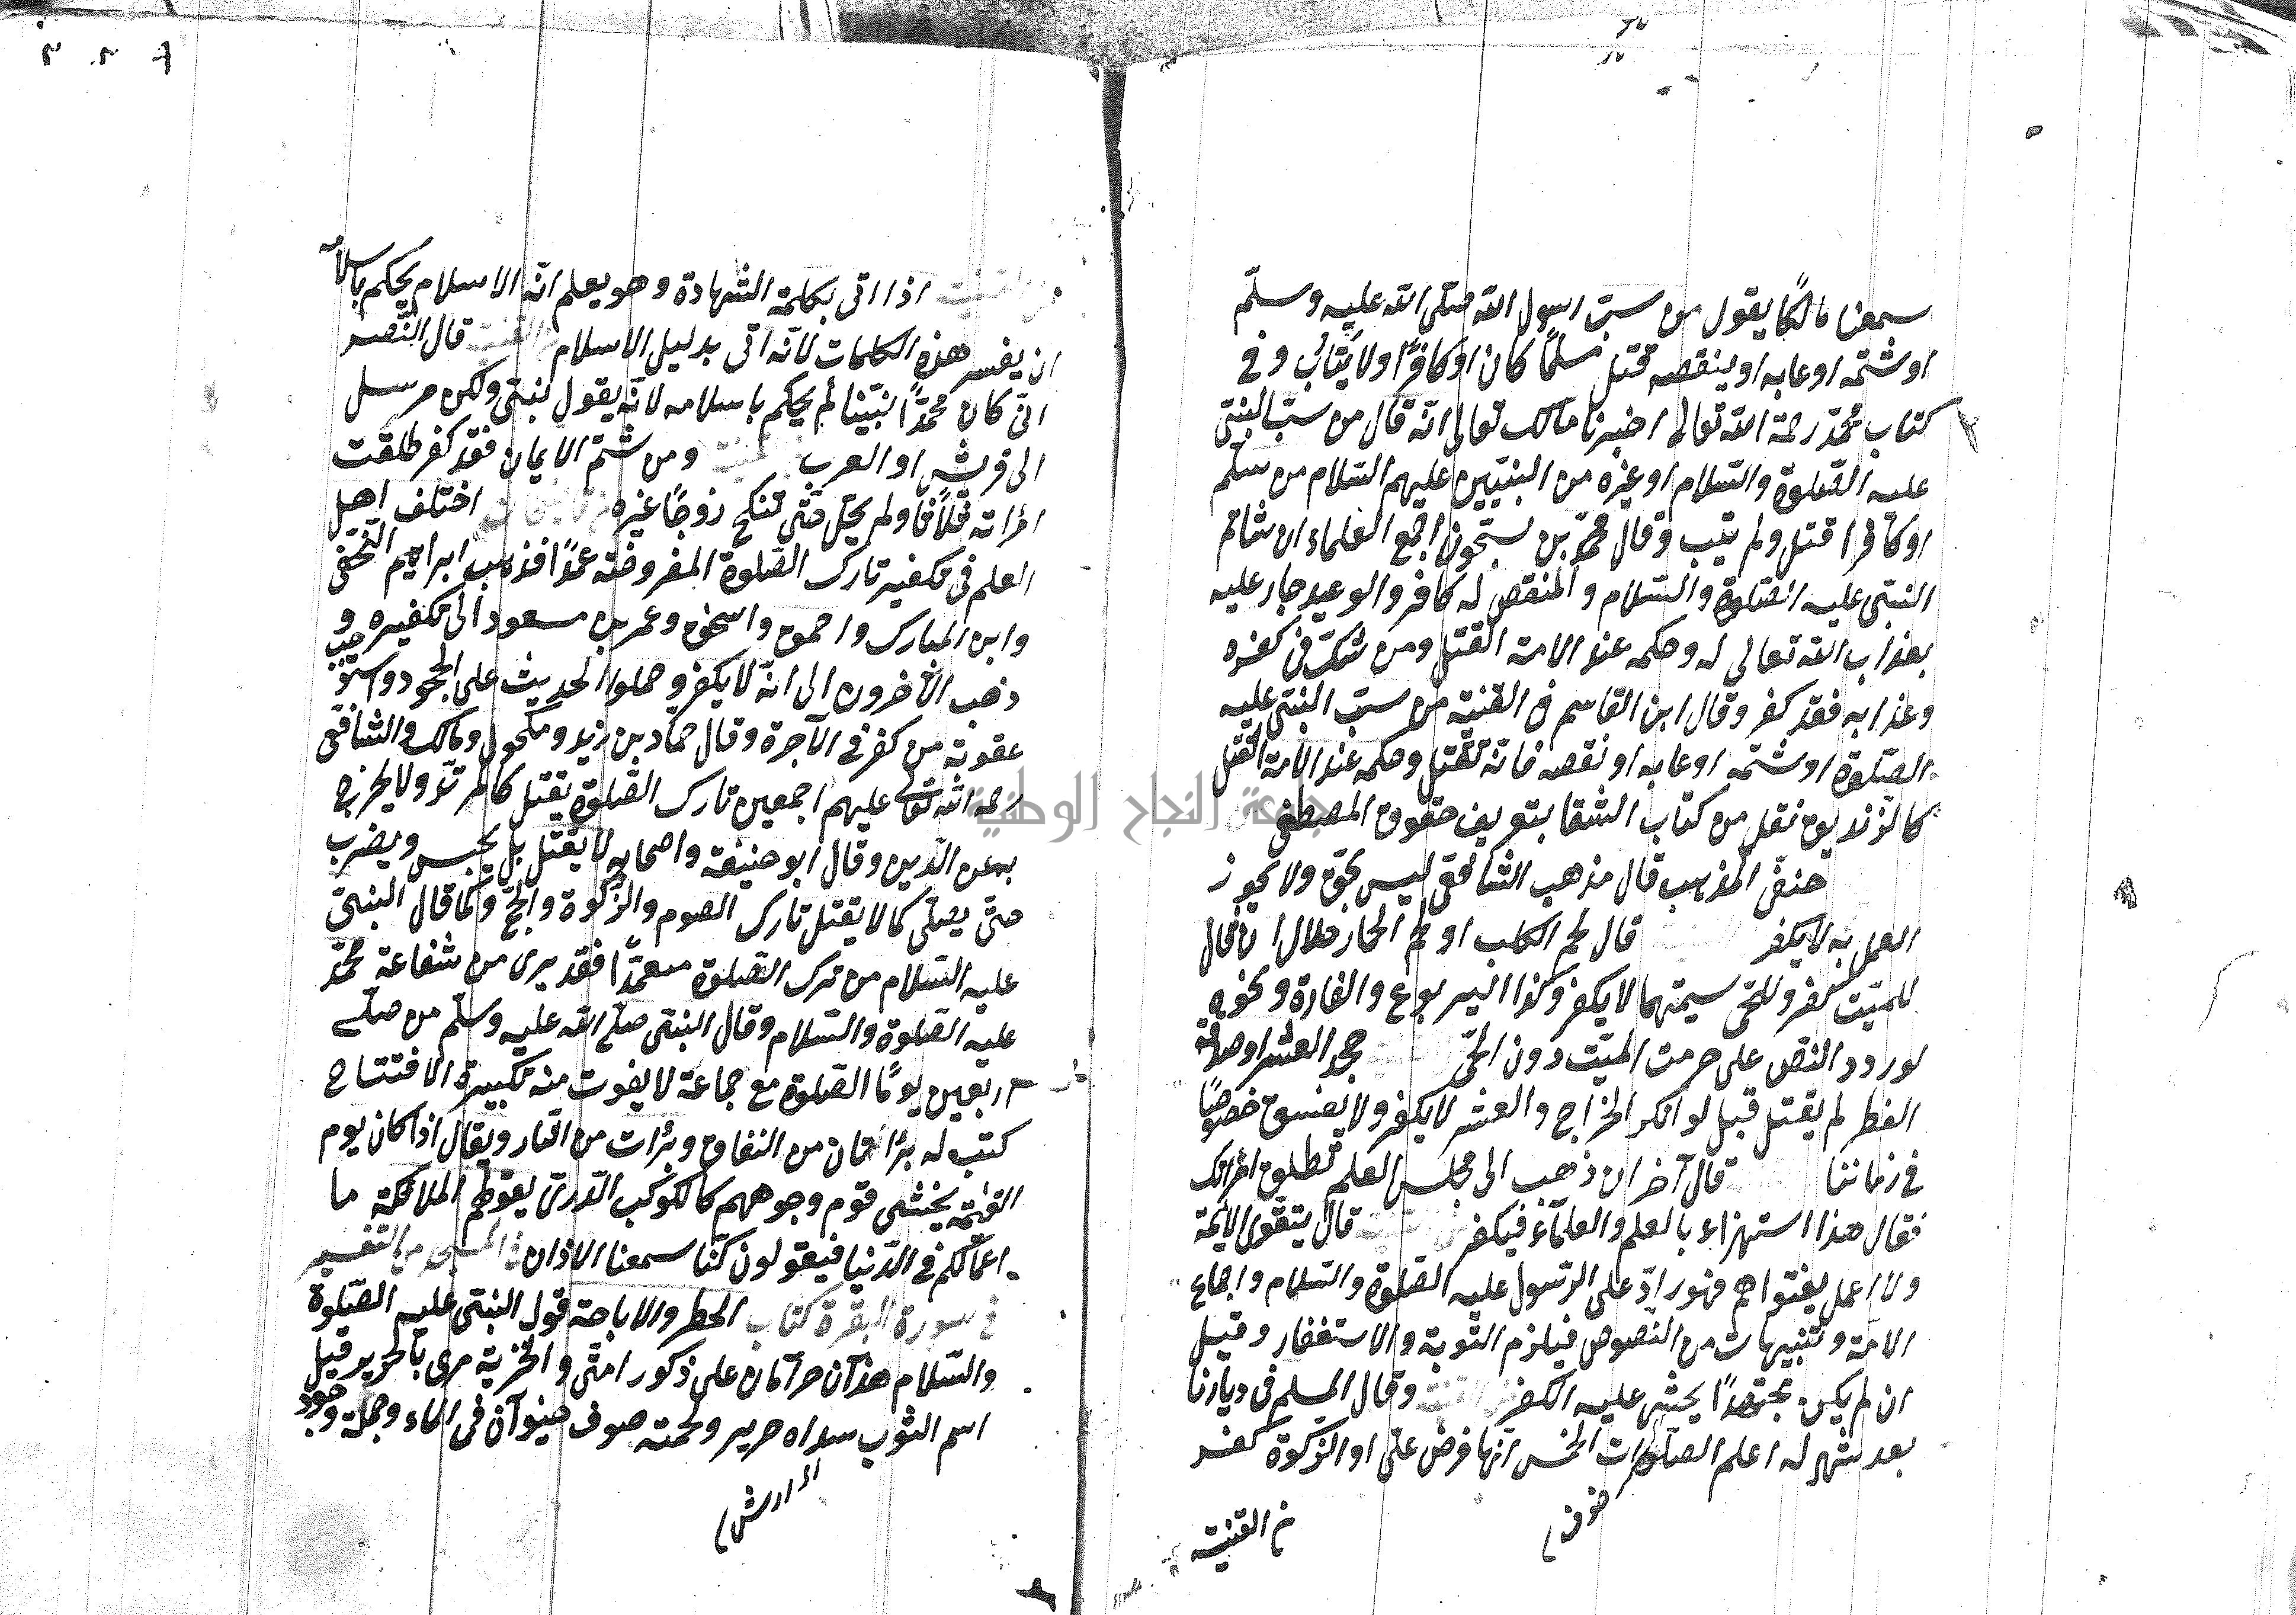 سمعنا مالكًا يقول من سبّ رسول الله صلى الله عليه وسلّم
او شتمه او عابه او ينقصه قتل مسلمًا كان او كافرًا ولا يتاب وفي
كتاب محمّد رحمة الله تعالى اخبرنا مالك تعالى انّه قال من سبّ النبىّ
عليه الصّلوة والسّلام او غيره من النبيّين عليهم السّلام من مسلم
او كافرا قتل ولم يتب وقال محمّد بن سحّون اجمع العلماء ان شاتم
النبىّ عليه الصّلوة والسّلام والمنقص له كافر والوعيد جار عليه
بعذاب الله تعالى له وحكمه عند الامة القتل ومن شكّ فى كفره
وعذابه فقد كفر وقال ابن القاسم فى القنية من سبّ النبىّ عليه
الصّلوة او شتمه او عابه او نقصه فانّه يقتل وحكمه عند الامة القتل
كالزنديق نقل من كتاب الشفا بتعريف حقوق المصطفى
حنفىّ المذهب قال مذهب الشافعى ليس بحقّ ولا يجوز
العمل به لا يكفر قال لحم الكلب او لحم الحمار حلال ان قال
للميّت يكفر وللحىّ سيمتهما لا يكفر وكذا اليربوع والفارة ونحوه
لورود النصّ على حرمت الميّت دون الحىّ جحد العشر او صدقة
الفطر لم يقتل قيل لو انكر الخراج والعشر لا يكفر ولا يفسق خصوصًا
فى زماننا قال آخر ان ذهب الى مجلس العلم تطلق امرأتك
فقال هذا استهزاء بالعلم والعلمآء فيكفر قال يتقوى الائمّة
ولا اعمل بفتواهم فهو رادّ على الرّسول عليه الصّلوة والسّلام واجماع
الامّة وتنبيهات من النّصوص فيلزم التّوبة والاستغفار وقيل
ان لم يكن مجتهدًا يخشى عليه الكفر وقال المسلم فى ديارنا
بعد شهر له اعلم الصلوات الخمس انّها فرض علىّ او الزّكوة كفر
من القنية
اذا اتى بكلمة الشهادة وهو يعلم انّه الاسلام يحكم باسلامه
ان يفسر هذه الكلمات لانّه اتى بدليل الاسلام قال النّصر
انّى كان محمّدًا نبيّنا لم يحكم باسلامه لانّه يقول نبىّ ولكن مرسل
الى قريش او العرب ومن شتم الايمان فقد كفر طلقت
امرأته ثلاثا ولم يحلّ حتّى تنكح زوجًا غيره اختلف اهل
العلم فى تكفير تارك الصّلوة المفروضة عمدًا فذهب ابراهيم النّخعى
وابن المبارك واحمق واسحق وعمر بن مسعود الى تكفيره و
ذهب الآخرون الى انّه لا يكفر وحملوا الحديث على الجحود واستوجب
عقوبة من كفر فى الآخرة وقال حمّاد بن زيد ومكحول ومالك والشافعى
رحمة الله تعالى عليهم اجمعين تارك الصّلوة يقتل كالمرتدّ ولا يخرج
به عن الدّين وقال ابو حنيفة واصحابه لا يقتل بل يحبس ويضرب
حتّى يصلّى كما لا يقتل تارك الصوم والزّكوة والحجّ وكما قال النبىّ
عليه السّلام من ترك الصّلوة متعمّدًا فقد برى من شفاعة محمّد
عليه الصّلوة والسّلام وقال النبىّ صلى الله عليه وسلّم من صلّى
اربعين يومًا الصّلوة مع جماعة لا يفوت منه تكبيرة الافتتاح
كتب له برأتان من النفاق وبرأت من النّار ويقال اذا كان يوم
القيٰمة يخشى قوم وجوههم كالكوكب الدّرىّ يقولهم الملائكة ما
اعمالكم فى الدّنيا فيقولون كنّا سمعنا الاذان التفسير
فى سورة البقرة كتاب الحظر والاباحة قول النبىّ عليه الصّلوة
والسّلام هذان حرآمان على ذكور امّتى والخزّية مرى بالحرير قيل
اسم الثوب سداه حرير ولحمته صوف حيوآن فى الماء وجملة وجود